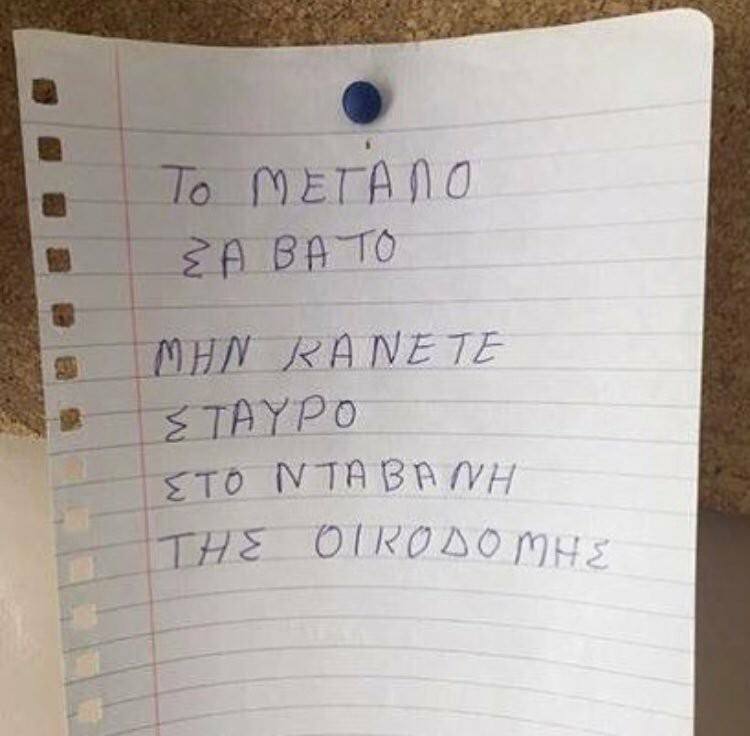 ΤΟ ΜΕΓΑΛΟ
ΣΑΒΑΤΟ
ΜΗΝ ΚΑΝΕΤΕ
ΣΤΑΥΡΟ
ΣΤΟ ΝΤΑΒΑΝΗ
ΤΗΣ ΟΙΚΟΔΟΜΗΣ